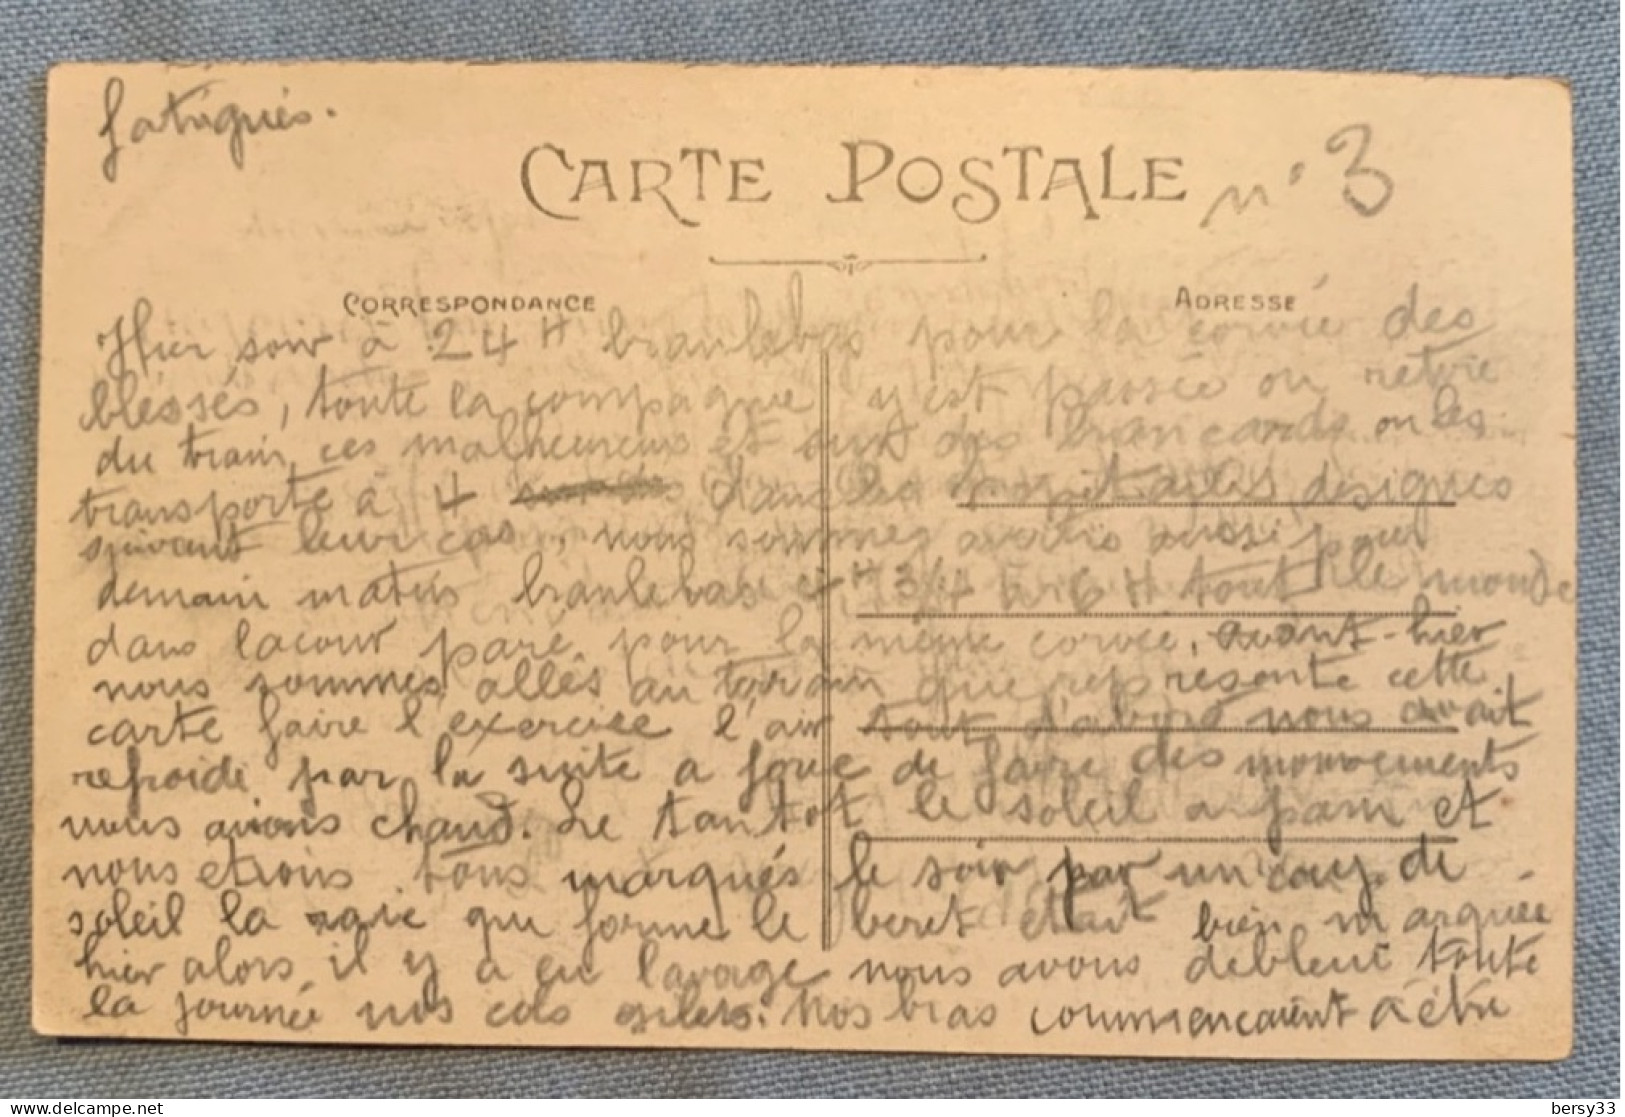 fatigués.
CARTE POSTALE
n° 3
CORRESPONDANCE
ADRESSE
Hier soir à 24 H branlebas pour la corvée des
blessés, toute la compagnie y est passée on retire
du train ces malheureux et sur des brancards on les
transporte à 4 dans les hopitaux désignés
suivant leur cas, nous sommes avertis aussi pour
demain matin branlebas 3/4 à 6 H tout le monde
dans la cour paré pour la même corvée, avant-hier
nous sommes allés au terrain que represente cette
carte faire l'exercice l'air tout d'abord nous avait
refroidi par la suite a force de faire des mouvements
nous avions chaud. Le tantot le soleil a paru et
nous etions tous marqués le soir par un coup de
soleil la raie que forme le beret etait bien marquée
hier alors il y a eu lavage nous avons deblene toute
la journée nos cols Nos bras commencaient a être
bersy33